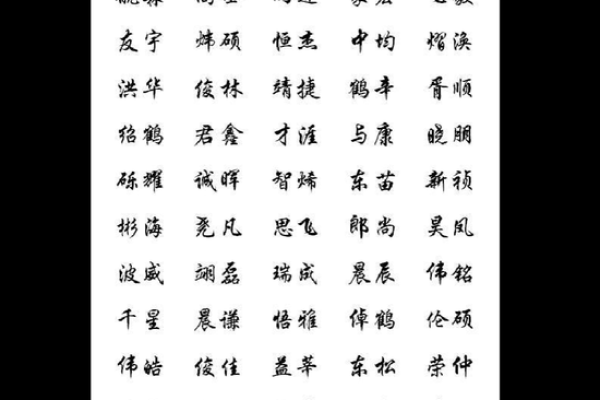 友宇 炜硕 恒杰 中均 熠涣
洪华 俊林 靖捷 鹤辛 胥顺
绍鹤 君鑫 才涯 与康 晓朋
砾耀 诚晖 智烯 东苗 新祯
彬海 尧凡 思飞 郎尚 昊凤
波威 翊磊 瑞成 晨辰 伟铭
千星 晨谦 悟雅 倬鹤 伦硕
伟皓 俊佳 益莘 东松 荣仲